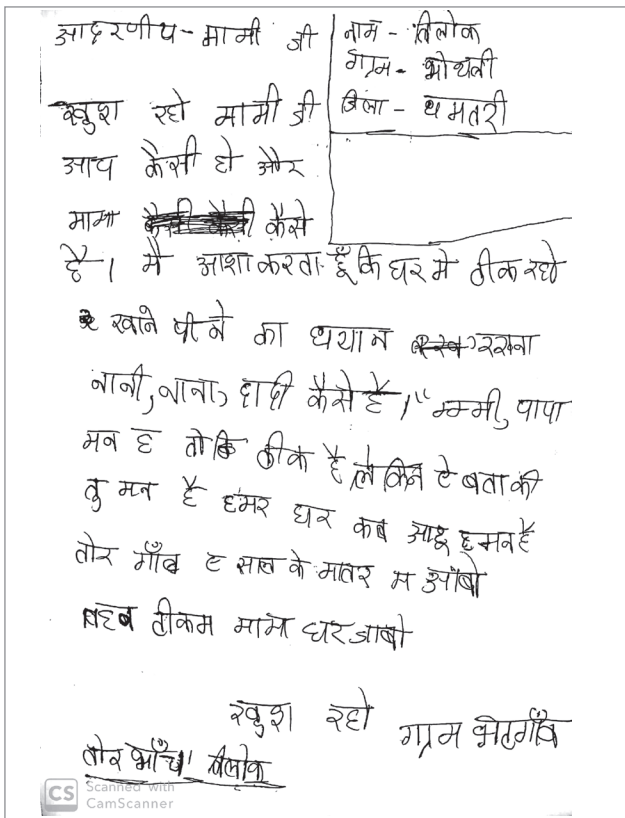 आदरणीय - मामी जी
नाम - त्रिलोक
ग्राम - भोथली
जिला - धमतरी
खुश रहो मामी जी
आप कैसी हो और
मामा कैसे
है। मै आशा करता हूँ कि घर मे ठीक रहो
खाने पीने का धयान रखना
नानी, नाना, दादी कैसे है।" मम्मी, पापा
मन ह तो ठीक है, लेकिन ऐ बता की
तु मन है हमर घर कब आहू हमन है
तोर गाँव ऐ साल के मातर म आँबो
टीकम मामा घर जाबो
खुश रहो
ग्राम
तोर भाँचा त्रिलोक
CS Scanned with
CamScanner